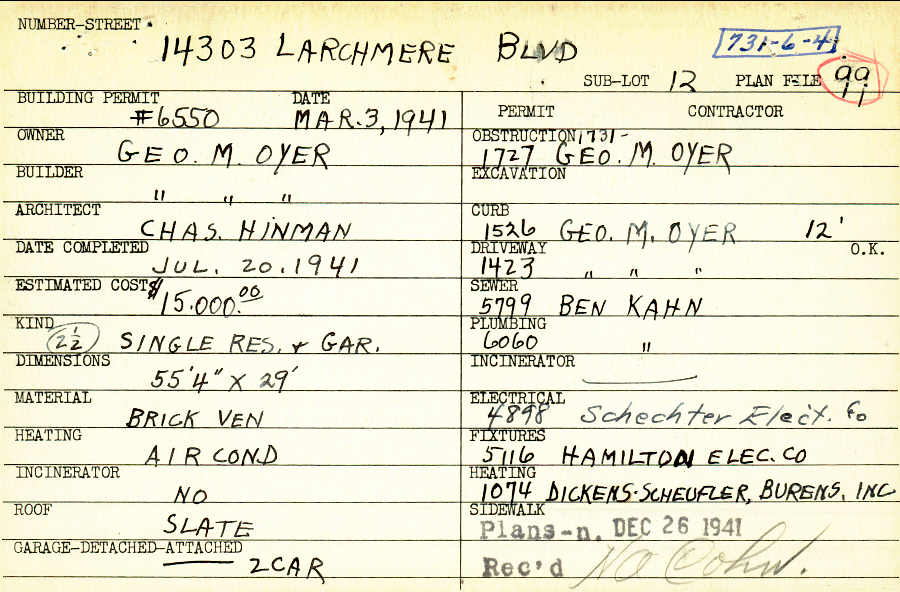 NUMBER-STREET
14303 LARCHMERE BLVD
731-6-41
SUB-LOT 12 PLAN FILE 99
BUILDING PERMIT DATE
#6550 MAR. 3, 1941
PERMIT CONTRACTOR
OWNER
GEO. M. OYER
OBSTRUCTION 1731-
1727 GEO. M. OYER
BUILDER
" " "
EXCAVATION
ARCHITECT
CHAS. HINMAN
CURB
1526 GEO. M. OYER 12'
DATE COMPLETED
JUL. 20. 1941
DRIVEWAY O.K.
1423 " " "
ESTIMATED COST
$15.000.00
SEWER
5799 BEN KAHN
KIND
2½ SINGLE RES. & GAR.
PLUMBING
6060 "
DIMENSIONS
55'4" X 29'
INCINERATOR
MATERIAL
BRICK VEN
ELECTRICAL
4898 Schechter Elect. Co
HEATING
AIR COND
FIXTURES
5116 HAMILTON ELEC. CO
INCINERATOR
NO
HEATING
1074 DICKENS-SCHEUFLER, BURENS, INC
ROOF
SLATE
SIDEWALK
Plans-n. DEC 26 1941
GARAGE-DETACHED-ATTACHED
2 CAR
Rec'd No